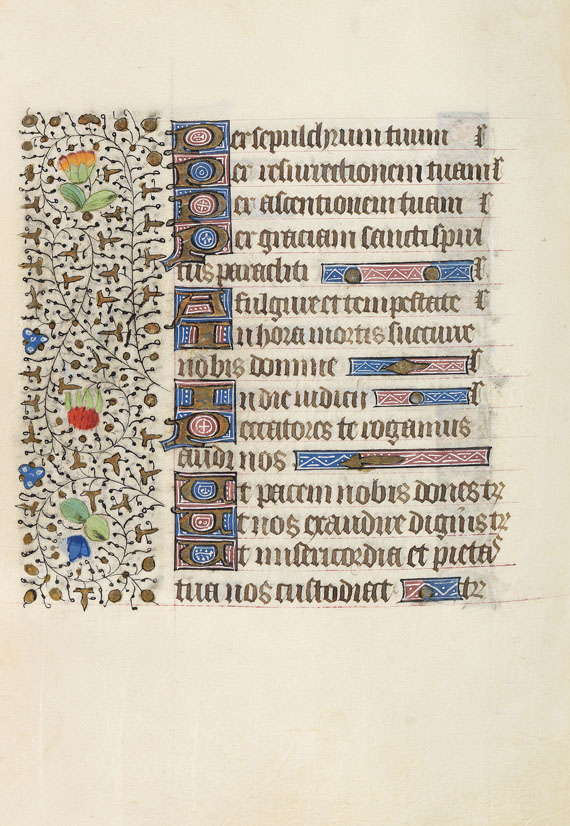 Per sepulchrum tuum l
Per resurrectionem tuam l
Per ascentionem tuam l
Per graciam sancti spiri
tus paracliti l
A fulgure et tempestate l
In hora mortis succurre
nobis domine l
In die iudicii l
Peccatores te rogamus
audi nos
Ut pacem nobis dones tr
Ut nos exaudire digneris tr
Ut misericordia et pietas
tua nos custodiat tr